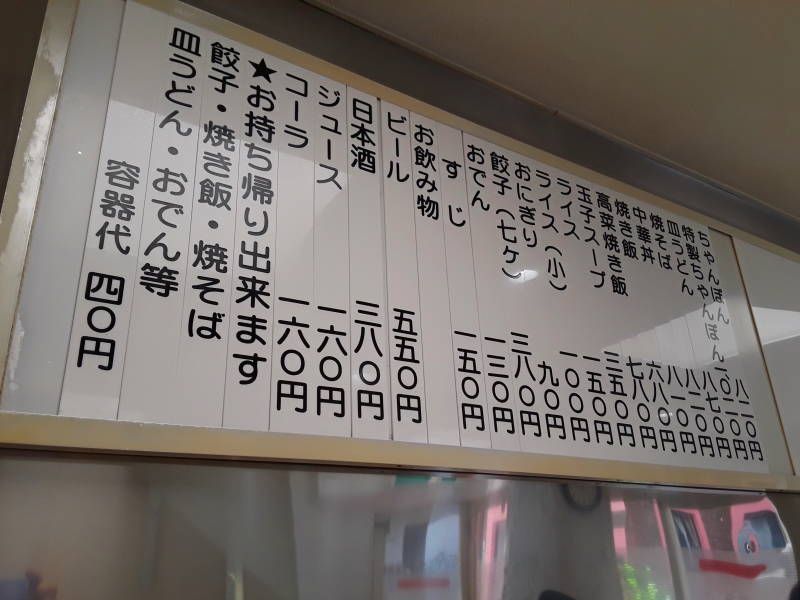 ちゃんぽん 八二〇円
特製ちゃんぽん 一〇二〇円
皿うどん 八七〇円
焼そば 八二〇円
中華丼 八一〇円
焼き飯 六八〇円
高菜焼き飯 七八〇円
玉子スープ 三五〇円
ライス 一五〇円
ライス(小) 一〇〇円
おにぎり 九〇円
餃子(七ヶ) 三八〇円
おでん 一三〇円
すじ 一五〇円
お飲み物
ビール 五五〇円
日本酒 三八〇円
ジュース 一六〇円
コーラ 一六〇円
★お持ち帰り出来ます
餃子・焼き飯・焼そば
皿うどん・おでん等
容器代 四〇円